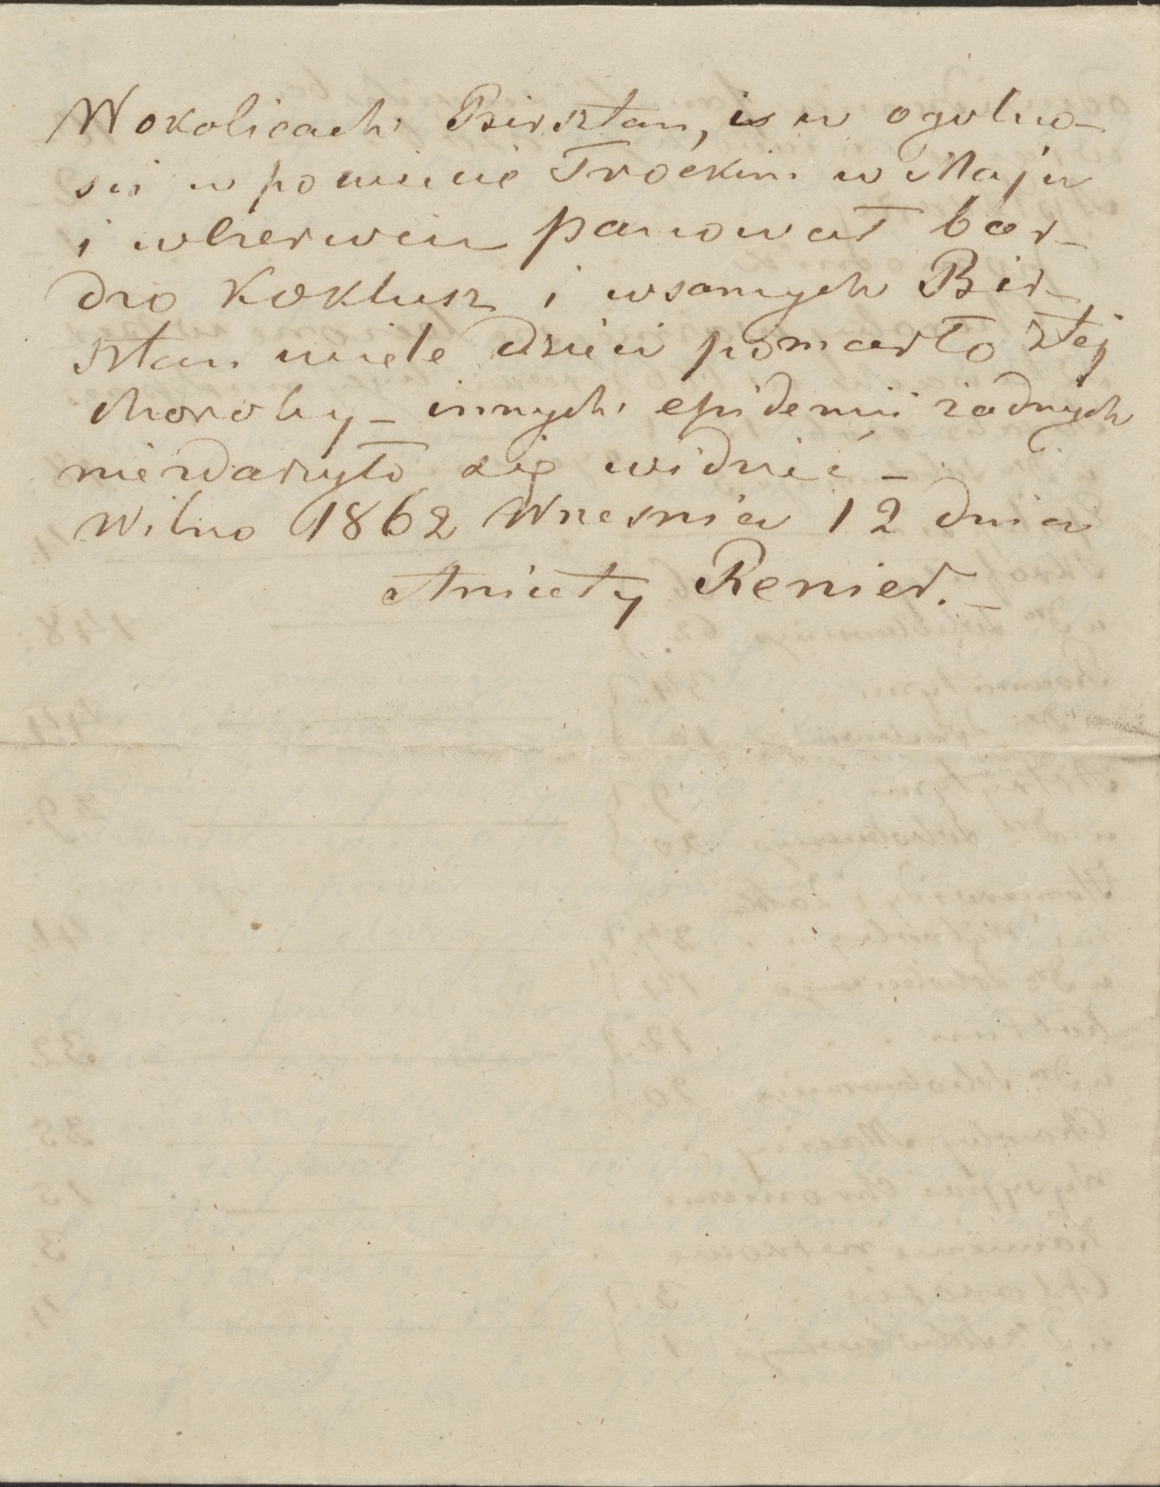 W okolicach Birsztan, i w ogolno-
sci w powiecie Trockim w Maju
i w Czerwcu panował bar-
dzo Koklusz i w samych Bir-
sztan. wiele dzieci pomarło z tej
choroby _ innych epidemii żadnych
niezdarzyło się widzieć _
Wilno 1862 Wrzesnia 12 dnia
Anicety Renier. _